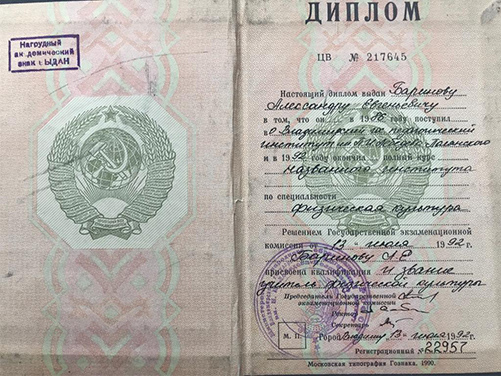 Нагрудный
академический
знак ВЫДАН
ДИПЛОМ
ЦВ № 217645
Настоящий диплом выдан Баринову
Александру Евгеньевичу
в том, что он в 1986 году поступил
во Владимирский гос. педагогический
институт им. П.И. Лебедева-Полянского
и в 1992 году окончил полный курс
названного института
по специальности
физическая культура
Решением Государственной экзаменационной
комиссии от 13 июля 1992 г.
Баринову А.Е.
присвоена квалификация и звание
учитель физической культуры
Председатель Государственной
экзаменационной комиссии
Ректор
Секретарь
М. П.
Город Владимир 13 июля 1992 г.
Регистрационный № 22957
Московская типография Гознака. 1990.